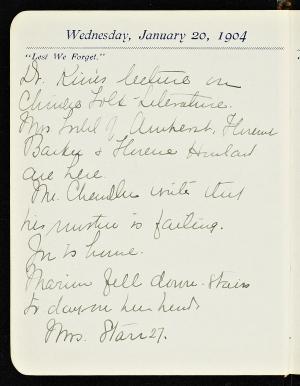 Wednesday, January 20, 1904
"Lest We Forget."
Dr. lecture on
Folk-Literature.
Mrs. of Amherst, Florence
& Florence
are here.
Mr. Chandler writes that
his mother is failing.
is home.
Marion fell down-stairs
to day on her head.
Mrs. Starr 27.